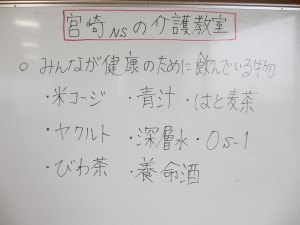 宮崎NSの介護教室
○ みんなが健康のために飲んでいる物
・米コージ ・青汁 ・はと麦茶
・ヤクルト ・深層水 ・OS-1
・びわ茶 ・養命酒